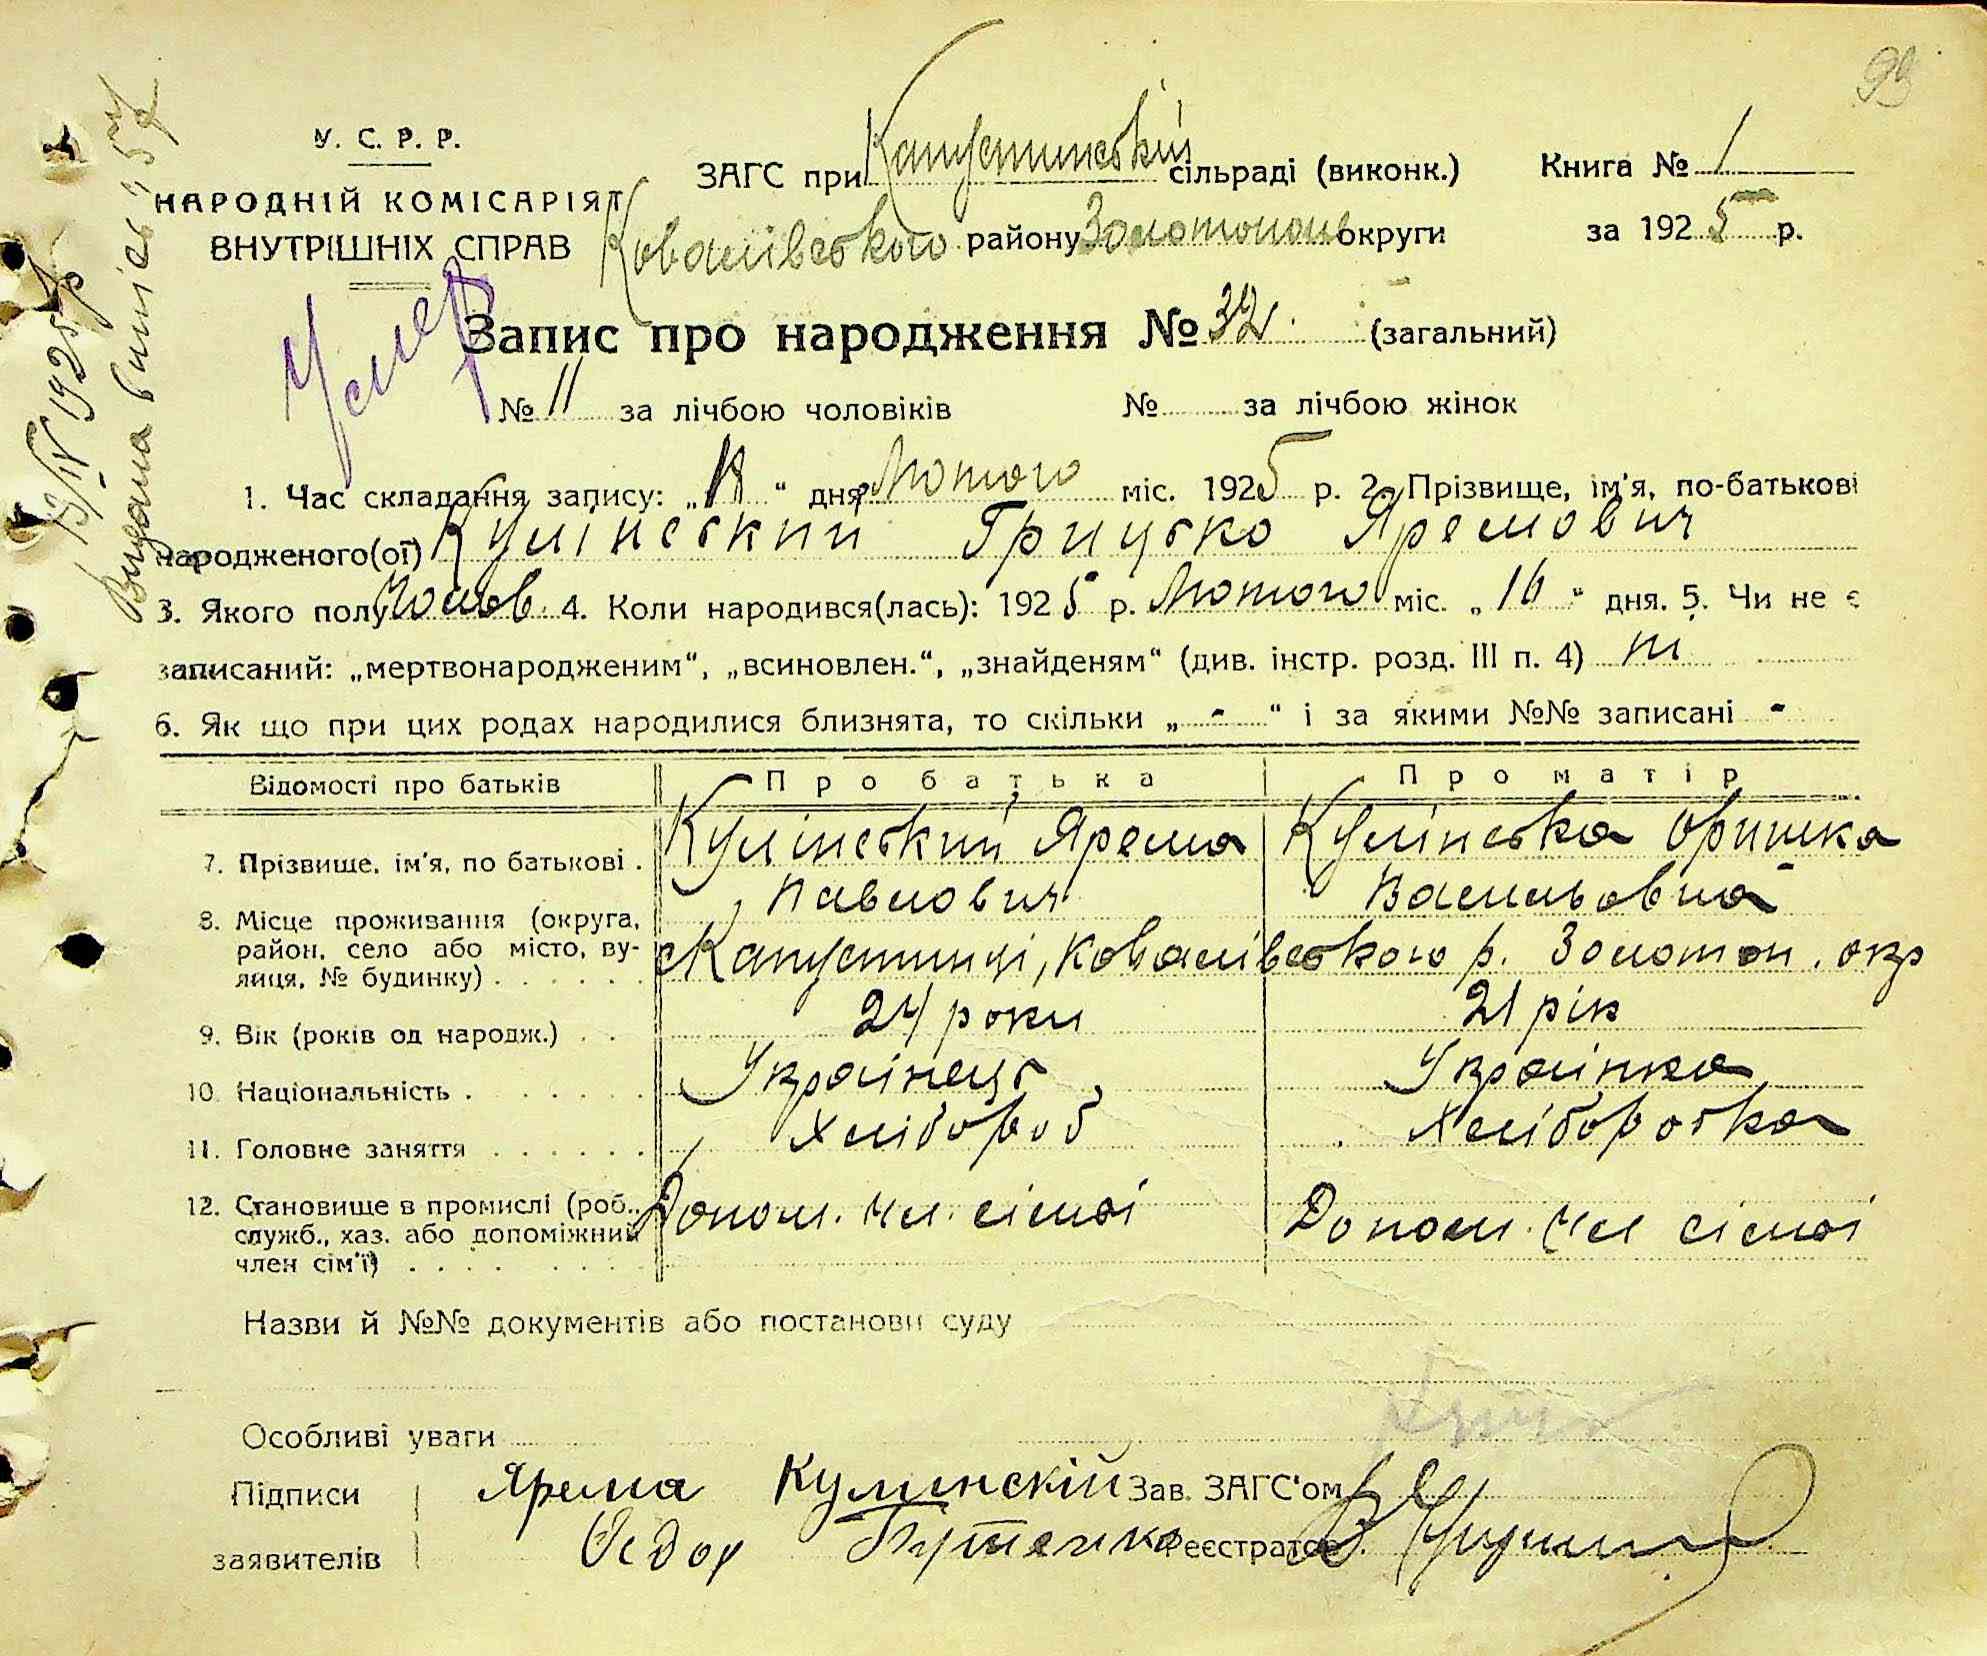 99
У. С. Р. Р.
НАРОДНІЙ КОМІСАРІЯТ
ВНУТРІШНІХ СПРАВ
ЗАГС при Капустинській сільраді (виконк.) Книга № 1
Ковалівського району Золотонош округи за 1925 р.
Умер
Видана випись
Запис про народження № 32 (загальний)
№ 11 за лічбою чоловіків № за лічбою жінок
1. Час складання запису: „ “ дня Лютого міс. 1925 р. 2. Прізвище, ім'я, по-батькові
народженого(ої) Кулінський Грицько Яремович
3. Якого полу Чолов. 4. Коли народився(лась): 1925 р. Лютого міс. „16“ дня. 5. Чи не є
записаний: „мертвонародженим“, „всиновлен.“, „знайденям“ (див. інстр. розд. III п. 4) ні
6. Як що при цих родах народилися близнята, то скільки „ - “ і за якими №№ записані -
Відомості про батьків Про батька Про матір
7. Прізвище, ім'я, по батькові . Кулінський Ярема Павлович Кулінська Оришка Васильовна
8. Місце проживання (округа, район, село або місто, вулиця, № будинку) . . . . . . с Капустинці, Ковалівського р. Золотон. окр
9. Вік (років од народж.) . . 24 роки 21 рік
10. Національність . . . . . . . Українець Українка
11. Головне заняття . . . . . . Хлібороб Хліборобка
12. Становище в промислі (роб., служб., хаз. або допоміжний член сім'ї) . . . . . . . . Допом. чл. сімої Допом. чл сімої
Назви й №№ документів або постанови суду
Особливі уваги
Підписи Ярема Кулинскій Зав. ЗАГС'ом
заявителів Федор Реєстратор